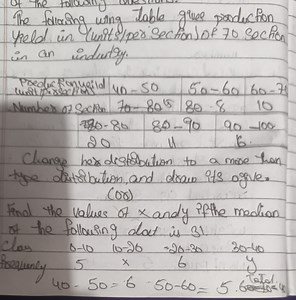 of the following
The following wing table gives production
yield in (units/per section) of 70 section
in an industry.
Production yield 40-50 50-60 60-7
Number of Section 70-80 80-8 10
80-80 80-90 90-100
20 11 6
Change her distribution to a more than
type distribution, and draw its ogive.
(OR)
Find the values of x and y if the median
of the following dat is 31
Class 0-10 10-20 -20-30 30-40
frequency 5 x 6 y
40-50=6 50-60=5 Total